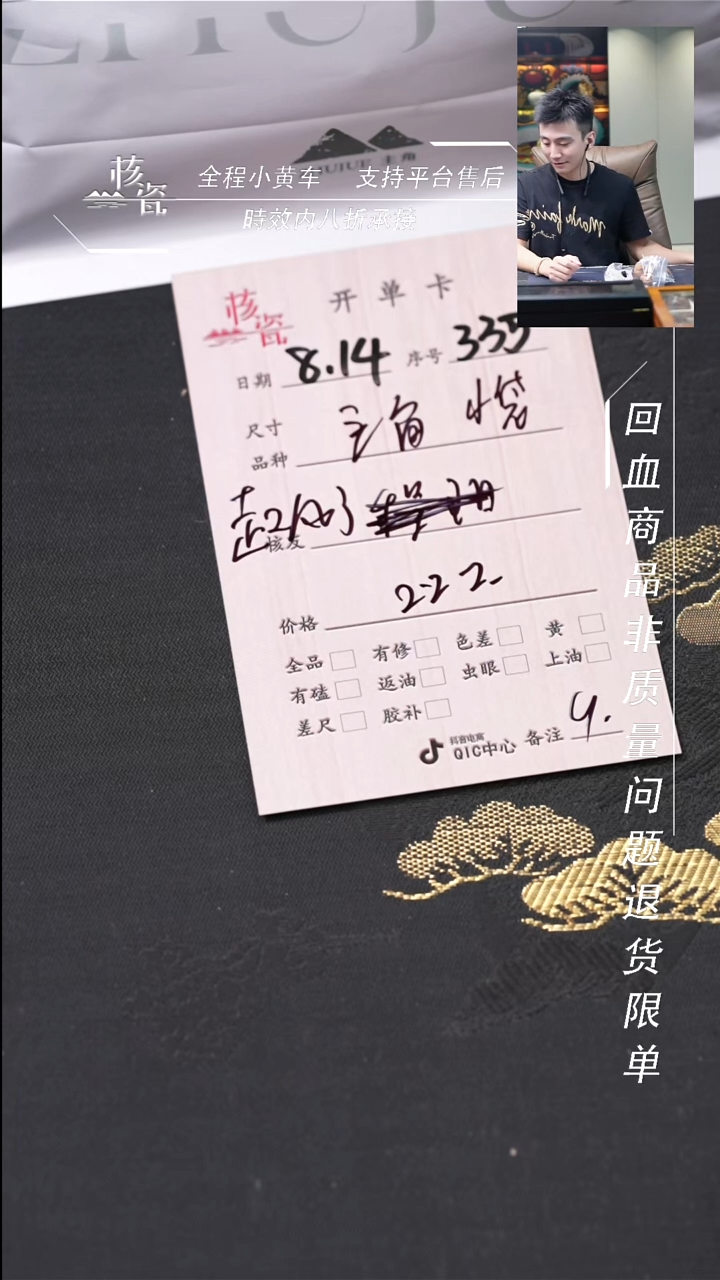 ZHUJUE
ZHUJUE 主角
核瓷
全程小黄车 支持平台售后
時效内八折承接
核瓷
开单卡
日期 8.14 序号 335
尺寸
品种 主角 小袋
核友
价格 222
全品 有修 色差 黄
有磕 返油 虫眼 上油
差尺 胶补
抖音电商
QIC中心 备注 9.
回血商品非质量问题退货限单